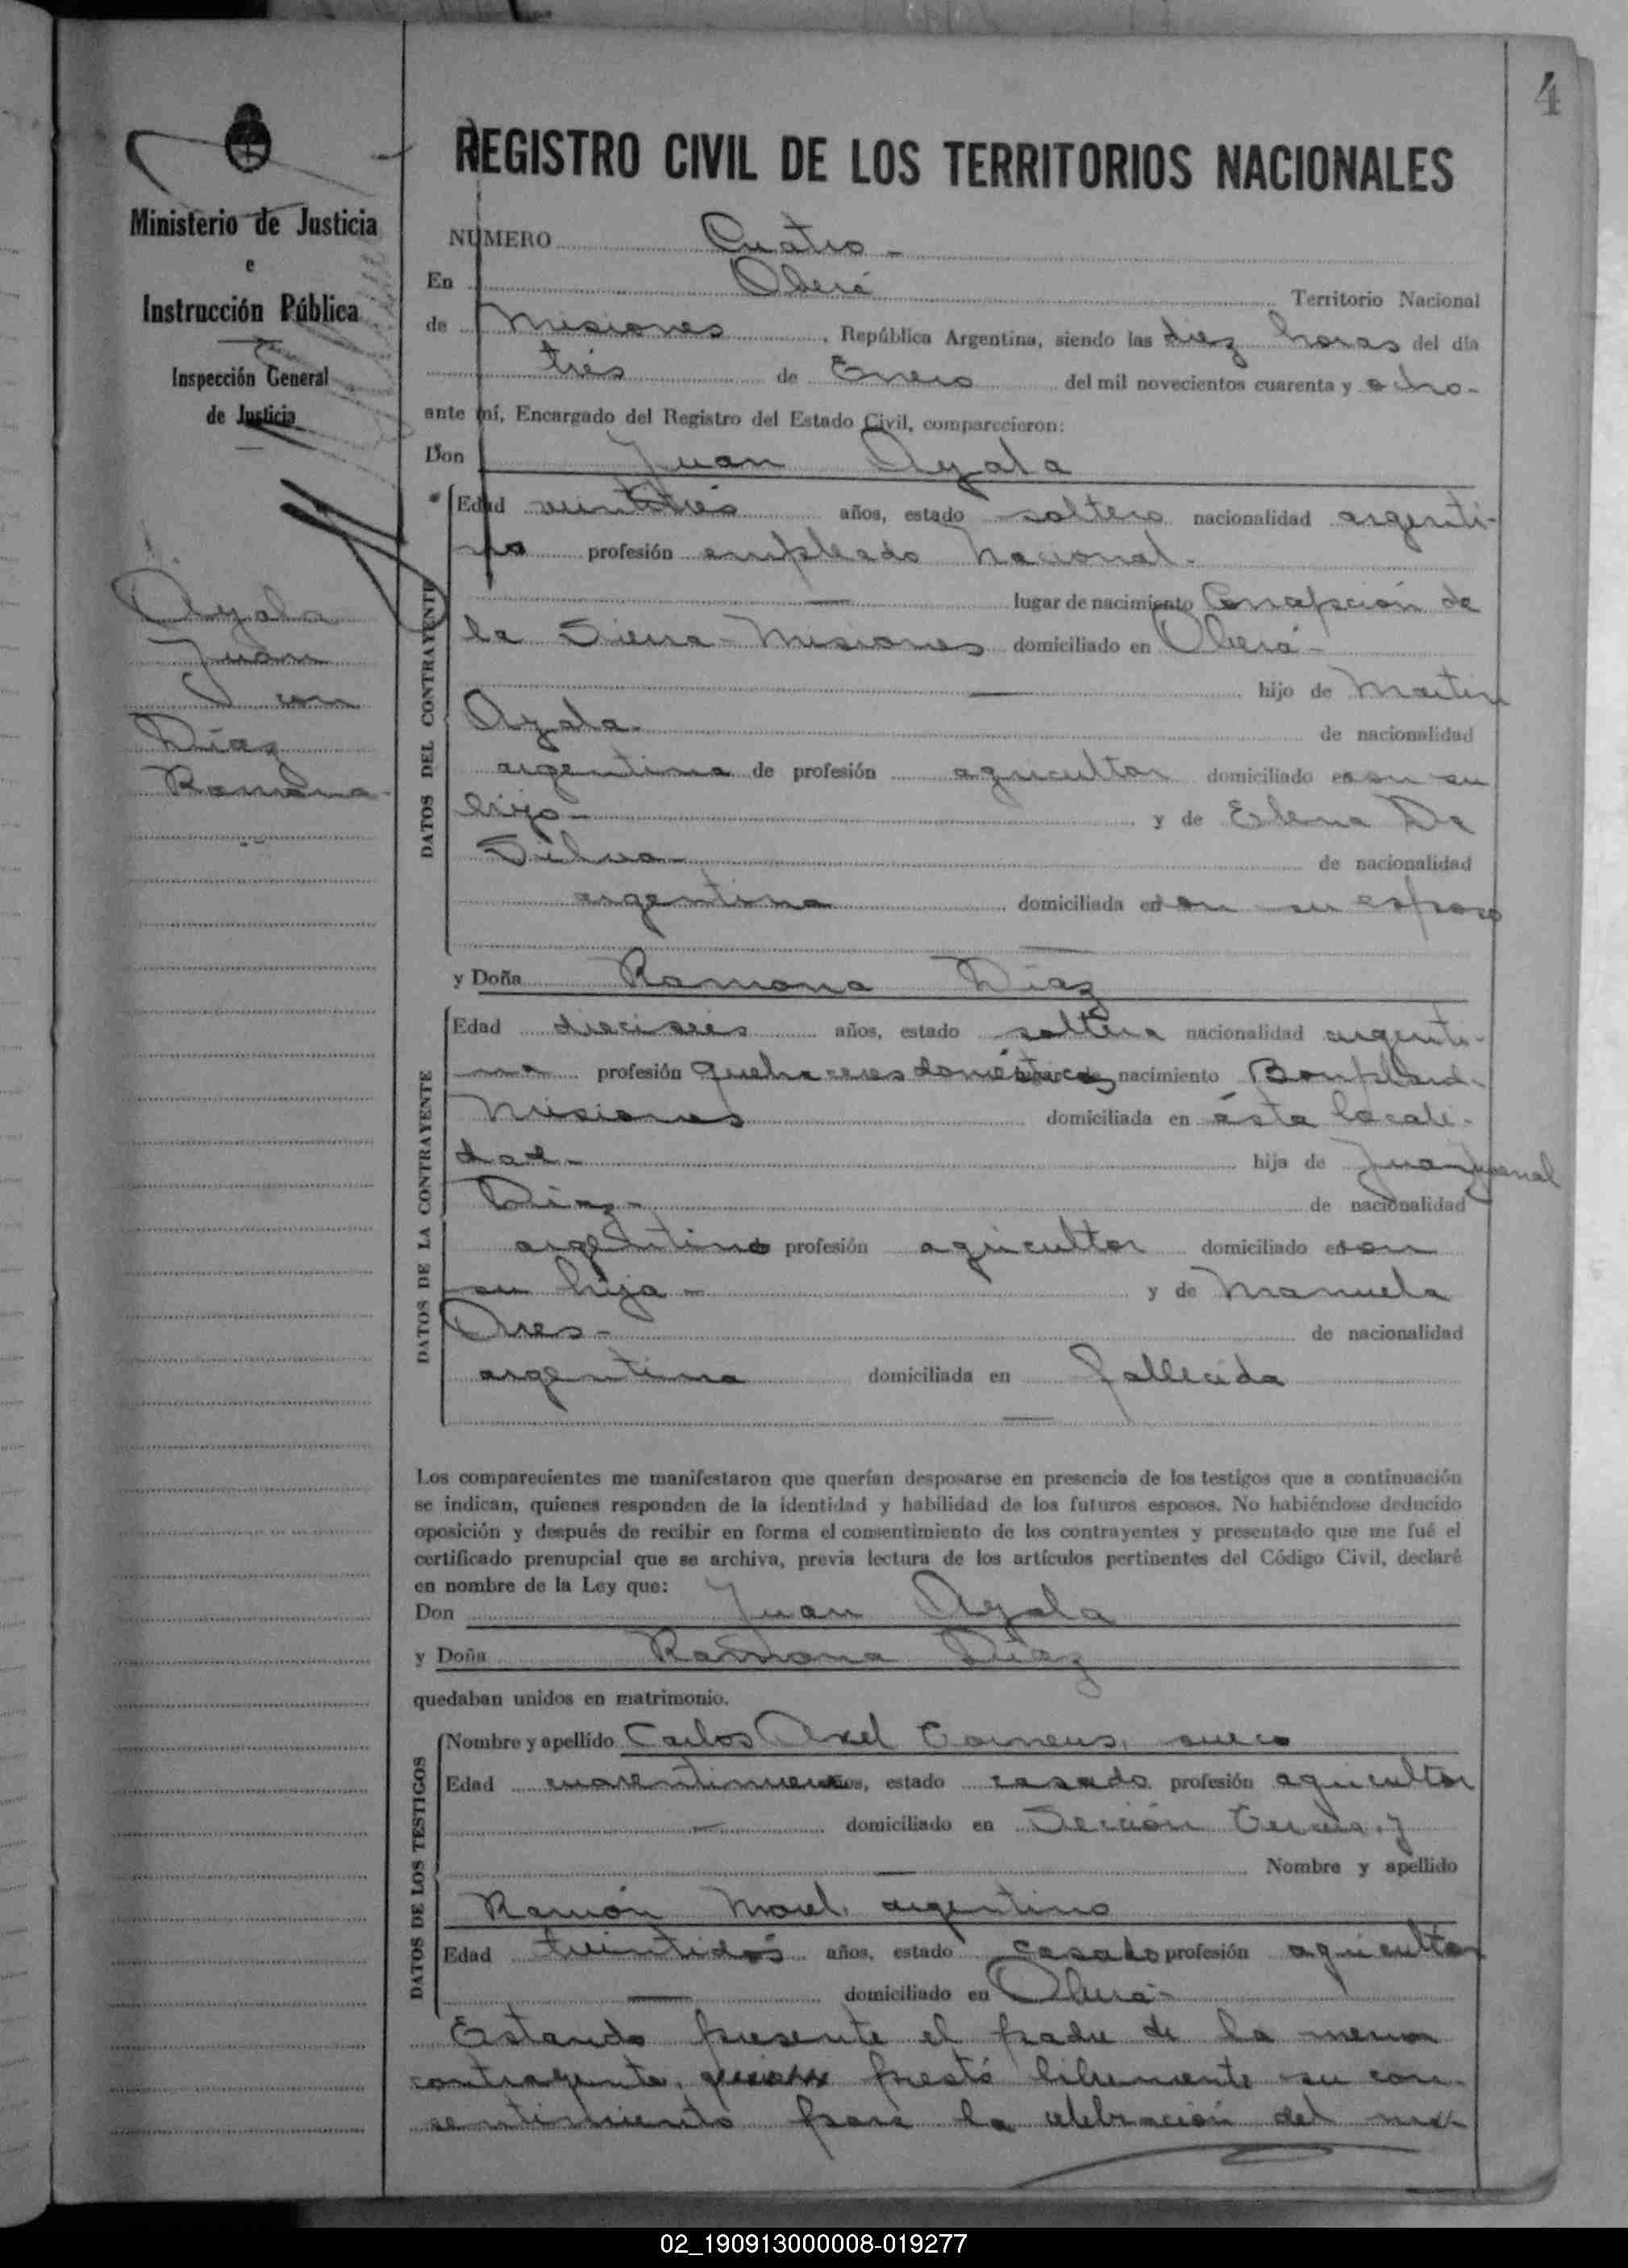 4
Ministerio de Justicia
e
Instrucción Pública
Inspección General
de Justicia
Ayala
Juan
con
Díaz
Ramona
REGISTRO CIVIL DE LOS TERRITORIOS NACIONALES
NUMERO Cuatro-
En Oberá Territorio Nacional
de Misiones, República Argentina, siendo las diez horas del día
tres de Enero del mil novecientos cuarenta y ocho-
ante mí, Encargado del Registro del Estado Civil, comparecieron:
Don Juan Ayala
DATOS DEL CONTRAYENTE
Edad veintitrés años, estado soltero nacionalidad argenti-
no profesión empleado Nacional-
lugar de nacimiento Concepción de
la Sierra-Misiones domiciliado en Oberá-
hijo de Martín
Ayala- de nacionalidad
argentina de profesión agricultor domiciliado en con su
hijo- y de Elena Da
Silva- de nacionalidad
argentina domiciliada en con su esposo
y Doña Ramona Díaz
DATOS DE LA CONTRAYENTE
Edad dieciseis años, estado soltera nacionalidad argenti-
na profesión quehaceres domésticos lugar de nacimiento Bonpland-
Misiones domiciliada en ésta locali-
dad- hija de Juan
Díaz- de nacionalidad
argentino profesión agricultor domiciliado en con
su hija- y de Manuela
Ares- de nacionalidad
argentina domiciliada en fallecida
Los comparecientes me manifestaron que querían desposarse en presencia de los testigos que a continuación
se indican, quienes responden de la identidad y habilidad de los futuros esposos. No habiéndose deducido
oposición y después de recibir en forma el consentimiento de los contrayentes y presentado que me fué el
certificado prenupcial que se archiva, previa lectura de los artículos pertinentes del Código Civil, declaré
en nombre de la Ley que:
Don Juan Ayala
y Doña Ramona Díaz
quedaban unidos en matrimonio.
DATOS DE LOS TESTIGOS
Nombre y apellido Carlos Axel sueco
Edad cuarentinueve años, estado casado profesión agricultor
domiciliado en Sección Tercera, y
Nombre y apellido
Ramón Morel, argentino
Edad treintidós años, estado casado profesión agricultor
domiciliado en Oberá-
Estando presente el padre de la menor
contrayente, prestó libremente su con-
sentimiento para la celebración del ma-
02_190913000008-019277